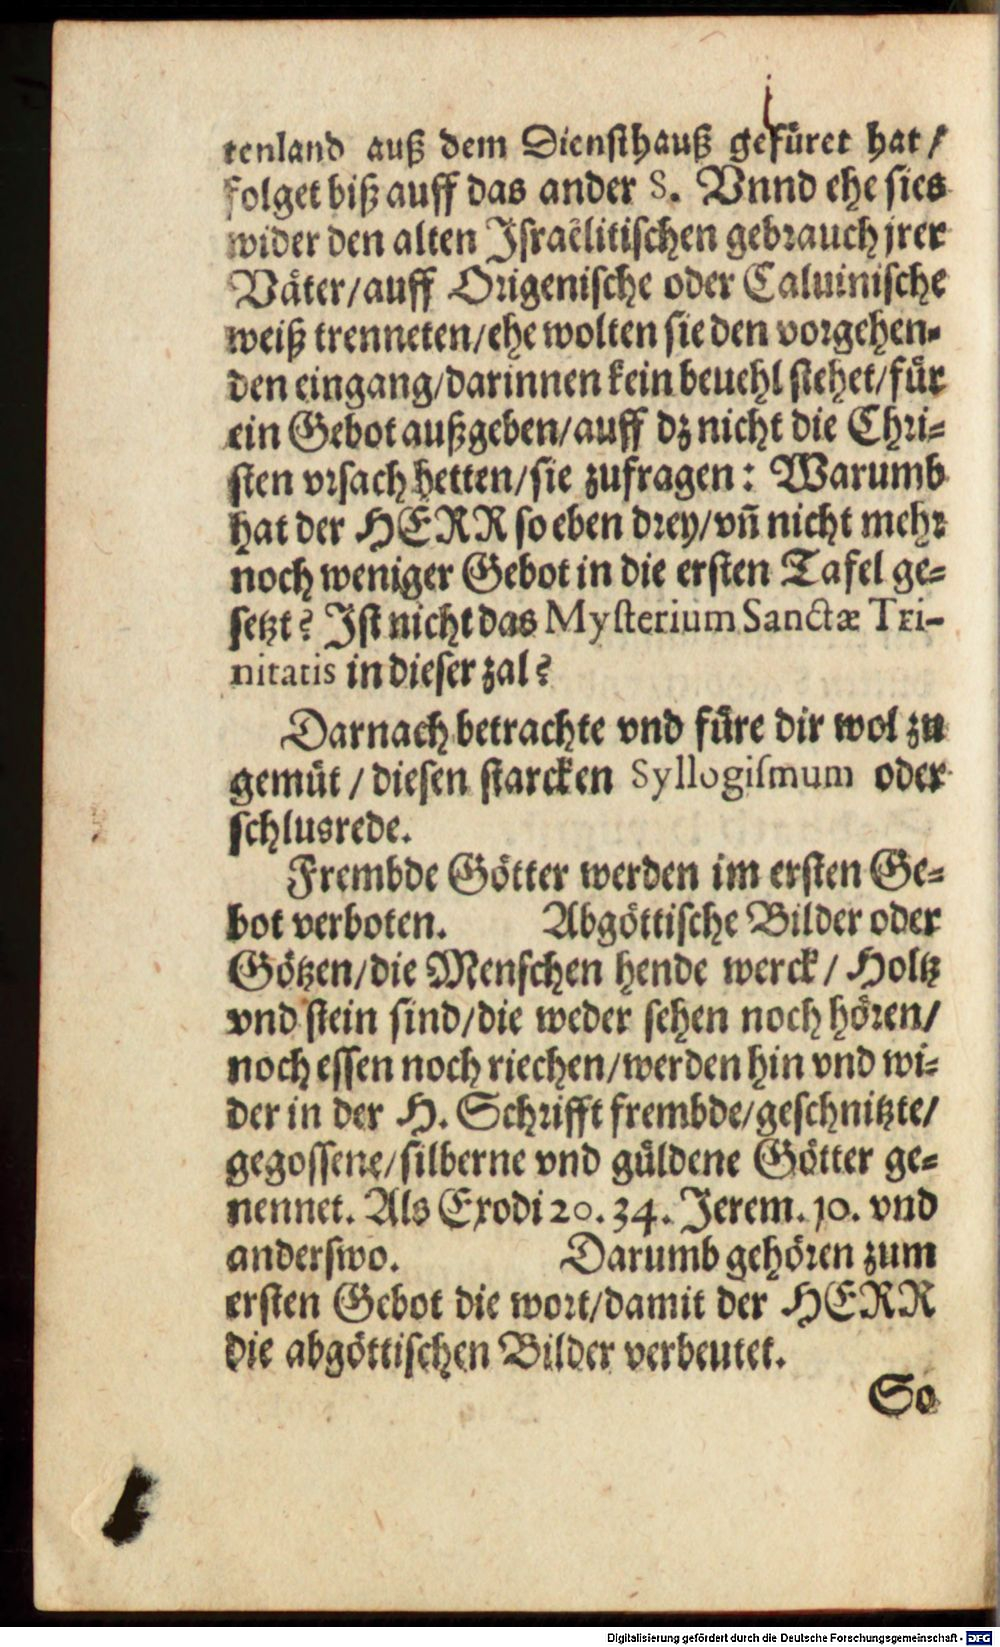 tenland auß dem Diensthauß gefüret hat /
folget biß auff das ander 8. Vnnd ehe sies
wider den alten Jsraëlitischen gebrauch jrer
Väter/auff Origenische oder Caluinische
weiß trenneten/ehe wolten sie den vorgehen-
den eingang/darinnen kein beuehl stehet/für
ein Gebot außgeben/auff dz nicht die Chri-
sten vrsach hetten/sie zufragen: Warumb
hat der HERR so eben drey/vñ nicht mehr
noch weniger Gebot in die ersten Tafel ge-
setzt? Jst nicht das Mysterium Sanctæ Tri-
nitatis in dieser zal?
Darnach betrachte vnd füre dir wol zu
gemüt / diesen starcken Syllogismum oder
schlusrede.
Frembde Götter werden im ersten Ge-
bot verboten. Abgöttische Bilder oder
Götzen/die Menschen hende werck/ Holtz
vnd stein sind/die weder sehen noch hören/
noch essen noch riechen/werden hin vnd wi-
der in der H. Schrifft frembde/geschnitzte/
gegossene/silberne vnd güldene Götter ge-
nennet. Als Exodi 20. 34. Jerem. 10. vnd
anderswo. Darumb gehören zum
ersten Gebot die wort/damit der HERR
die abgöttischen Bilder verbeutet.
So
Digitalisierung gefördert durch die Deutsche Forschungsgemeinschaft - DFG